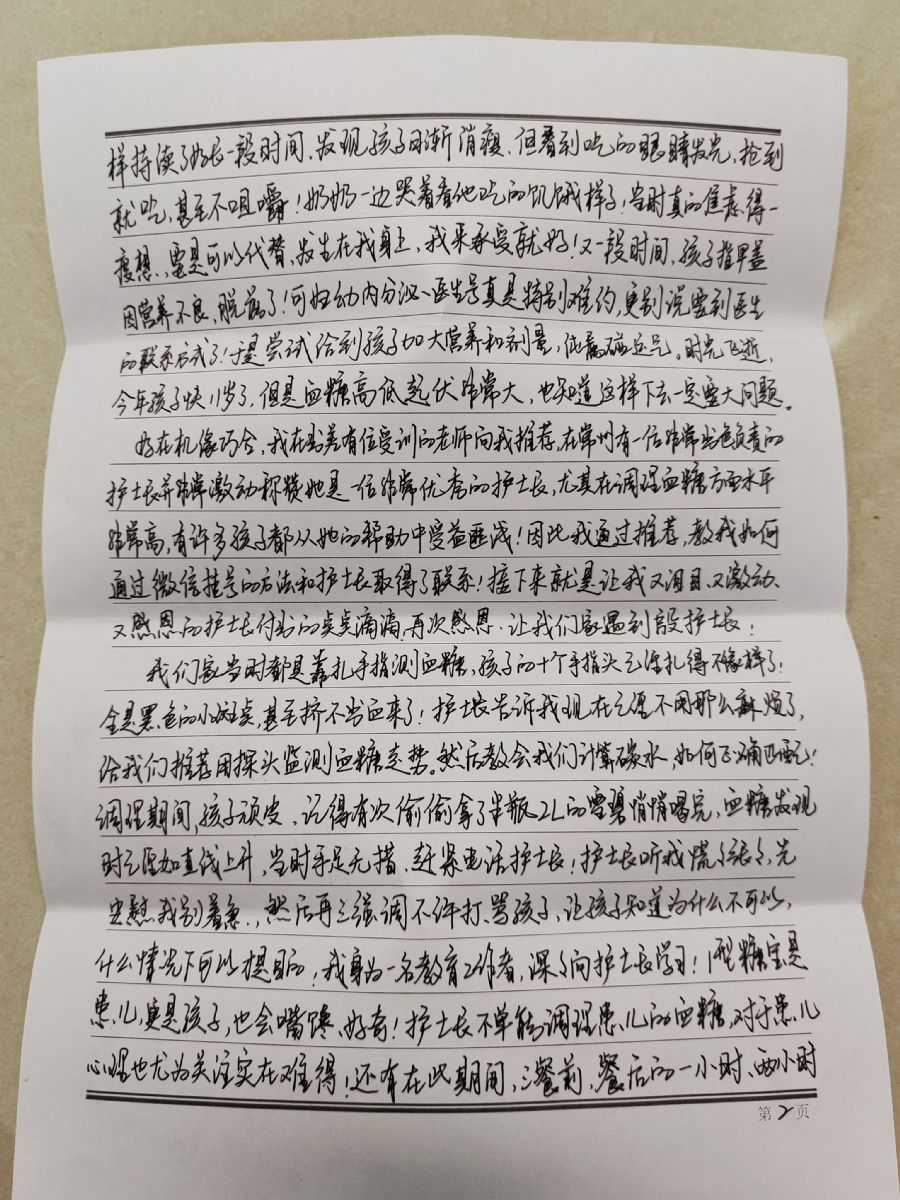 样持续了好长一段时间、发现孩子日渐消瘦、但看到吃的眼睛发光，抢到
就吃，甚至不咀嚼！奶奶一边哭着看他吃的饥饿样子！当时真的焦虑得一
想，要是可以代替，发生在我身上，我来承受就好！又一段时间，孩子指甲盖
因营养不良，脱落了！可妇幼内分泌、医生号真是特别难约，更别说要到医生
的联系方式了！于是尝试给到孩子加大营养和剂量，低
时光飞逝，
今年孩子快11岁了，但是血糖高低起伏非常大，也知道这样下去一定要大问题。
好在机缘巧合，我在出差有位受训的老师向我推荐，在常州有一位非常出色负责的
护士长并非常激动称赞她是一位非常优秀的护士长，尤其在调理血糖方面水平
非常高，有许多孩子都从她的帮助中受益匪浅！因此我通过推荐，教我如何
通过微信挂号的方法和护士长取得了联系！接下来就是让我又泪目、又激动、
又感恩的护士长付出的点点滴滴，再次感恩、让我们家遇到段护士长！
我们家当时都是靠扎手指测血糖，孩子的十个手指头已经扎得不像样了！
全是黑色的小斑点，甚至挤不出血来了！护士长告诉我现在已经不用那么麻烦了，
给我们推荐用探头监测血糖走势。然后教会我们计算碳水，如何正确匹配！
调理期间，孩子顽皮、记得有次偷偷拿了半瓶2L的雪碧悄悄喝完，血糖发现
时已经如直线上升，当时手足无措、赶紧电话护士长！护士长听我慌了张了，先
安慰我别着急，然后再三强调不许打、骂孩子，让孩子知道为什么不可以，
什么情况下可以提目的，我身为一名教育工作者，深深向护士长学习！1型糖宝是
患儿，更是孩子，也会嘴馋、好奇！护士长不单能调理患儿的血糖，对于患儿
心理也尤为关注实在难得！还有在此期间，三餐前，餐后的一小时、两小时
第2页